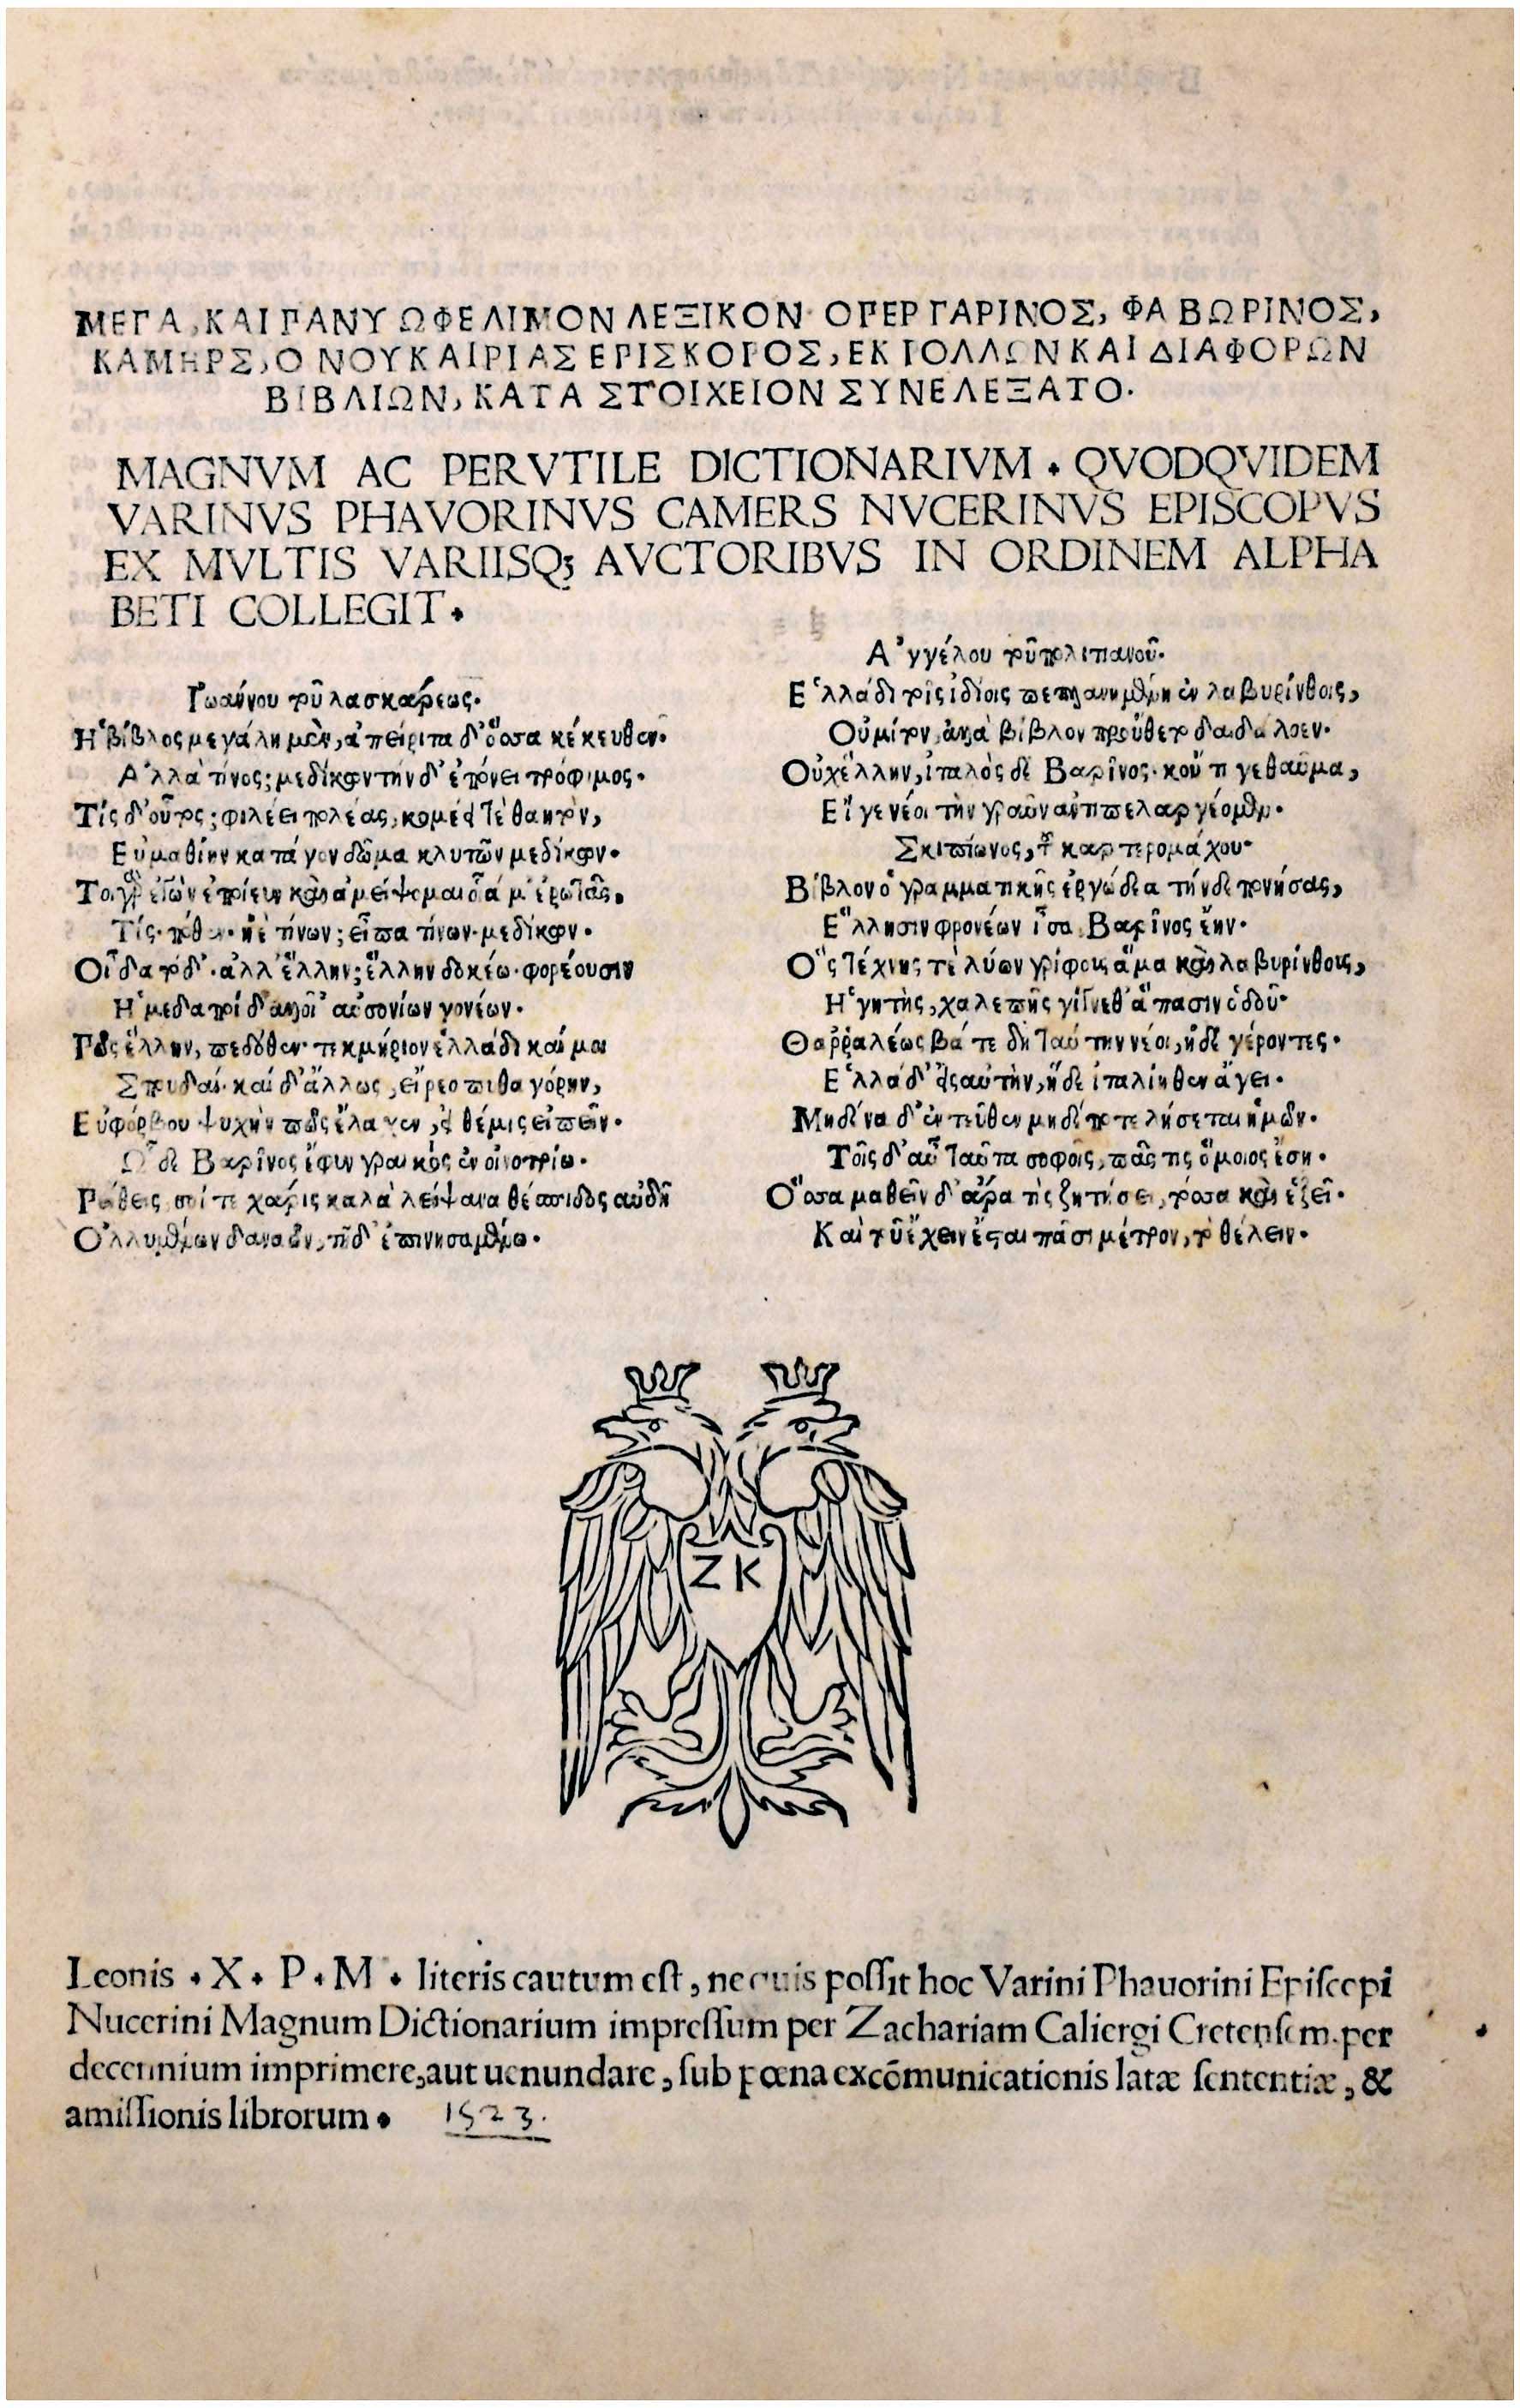 ΜΕΓΑ, ΚΑΙ ΠΑΝΥ ΩΦΕΛΙΜΟΝ ΛΕΞΙΚΟΝ· ΟΠΕΡ ΓΑΡΙΝΟΣ, ΦΑΒΩΡΙΝΟΣ,
ΚΑΜΗΡΣ, Ο ΝΟΥΚΑΙΡΙΑΣ ΕΠΙΣΚΟΠΟΣ, ΕΚ ΠΟΛΛΩΝ ΚΑΙ ΔΙΑΦΟΡΩΝ
ΒΙΒΛΙΩΝ, ΚΑΤΑ ΣΤΟΙΧΕΙΟΝ ΣΥΝΕΛΕΞΑΤΟ.
MAGNVM AC PERVTILE DICTIONARIVM. QVODQVIDEM
VARINVS PHAVORINVS CAMERS NVCERINVS EPISCOPVS
EX MVLTIS VARIISQꝫ AVCTORIBVS IN ORDINEM ALPHA
BETI COLLEGIT.
Ἰωάννου τοῦ λασκάρεως.
Ἡ βίβλος μεγάλη μὲν, ἀπείριτα δ' ὅσσα κέκευθεν.
Ἀλλὰ τίνος; μεδίκων τήνδ' ἐπόνει τρόφιμος.
Τίς δ' οὗτος; φιλέει πολέας, κομέει τε
Εὐμαθίην κατάγον δῶμα κλυτῶν μεδίκων.
Τίς· πόθεν· ἠὲ τίνων; εἶπα τίνων· μεδίκων.
Οἶδα τόδ'· ἀλλ' ἕλλην; ἕλλην δοκέω· φορέουσιν
Ἡμεδαποὶ δ' αὐσονίων γονέων.
Πῶς ἕλλην, πεδόθεν· τεκμήριον ἑλλάδι καί μοι
Σπουδαί· καὶ δ' ἄλλως, εἴρεο πυθαγόρην,
Εὐφόρβου ψυχὴν πῶς ἔλαχεν, εἰ θέμις εἰπεῖν.
Ὧδε Βαρῖνος ἔφυν γραικὸς ἐν οἰνοτρίῳ.
χάρις καλὰ λείψανα θέσπιδος αὐδῆ
Ὀλλυμένων δαναῶν, τῇδ' ἐπινησαμένῳ.
Ἀγγέλου τοῦ πολιτιανοῦ.
Ἑλλάδι τοῖς ἰδίοις πεπλανημένη ἐν λαβυρίνθοις,
Οὑμίτον, ἀνὰ βίβλον προὔθετο δαιδάλοεν.
Οὐχ ἕλλην, ἰταλὸς δὲ Βαρῖνος· κοὔτι γε θαῦμα,
Εἴ γε νέοι τὴν γραῦν ἀντιπελαργέομεν.
Σκιπίωνος, τοῦ καρτερομάχου.
Βίβλον ὁ γραμματικῆς ἐργώδεα τήνδε πονήσας,
Ἕλλησιν φρονέων ἶσα Βαρῖνος ἔην.
Ὃς τέχνης τε λύων γρίφους ἅμα καὶ λαβυρίνθους,
Ἡγητὴς, χαλεπῆς γίγνεθ' ἅπασιν ὁδοῦ.
Θαρραλέως βάτε δὴ ταύτην νέοι, ἠδὲ γέροντες.
Ἑλλάδ' ἐς αὐτὴν, ἥδε ἰταλίηθεν ἄγει.
Μηδένα δ' ἐντεῦθεν μηδέποτε λήσεται ἡμῶν.
Τοῖς δ' αὖ ταῦτα σοφοῖς, πᾶς τις ὅμοιος ἔσῃ.
Ὅσσα μαθεῖν δ' ἄρα τὶς ζητήσει, τόσσα καὶ ἕξει.
Καὶ τοῦ ἔχειν ἔσται πᾶσι μέτρον, τὸ θέλειν.
ZK
Leonis .X. P.M. literis cautum est, ne quis possit hoc Varini Phauorini Episcopi
Nucerini Magnum Dictionarium impressum per Zachariam Caliergi Cretensem. per
decennium imprimere, aut uenundare, sub pœna excōmunicationis latæ sententiæ, &
amissionis librorum. 1523.